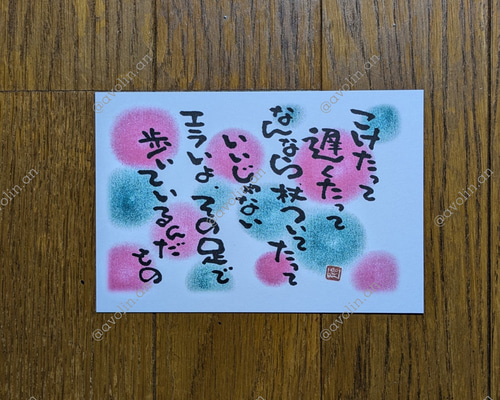 こけたって
遅くたって
なんなら杖ついてたって
いいじゃない
エライよ、その足で
歩いているんだ
もの
@avolin.an